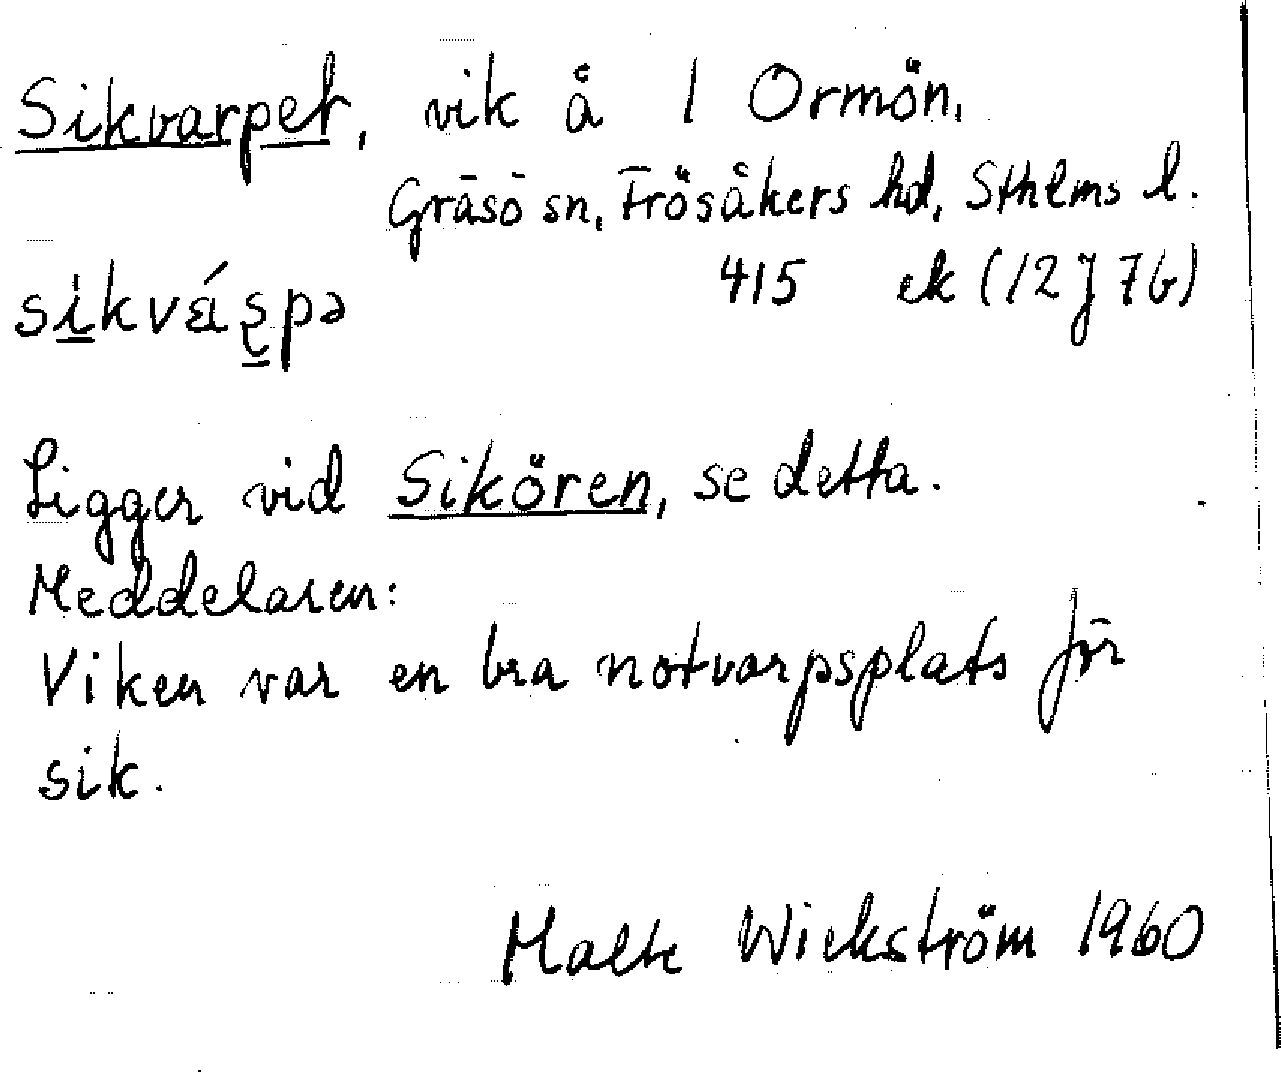 Sikvarpet, vik å 1 Ormön,
Gräsö sn, Frösåkers hd, Sthlms l.
415 ek (12J7b)
Ligger vid Sikören, se detta.
Meddelaren:
Viken var en bra notvarpsplats för
sik.
Malte Wickström 1960